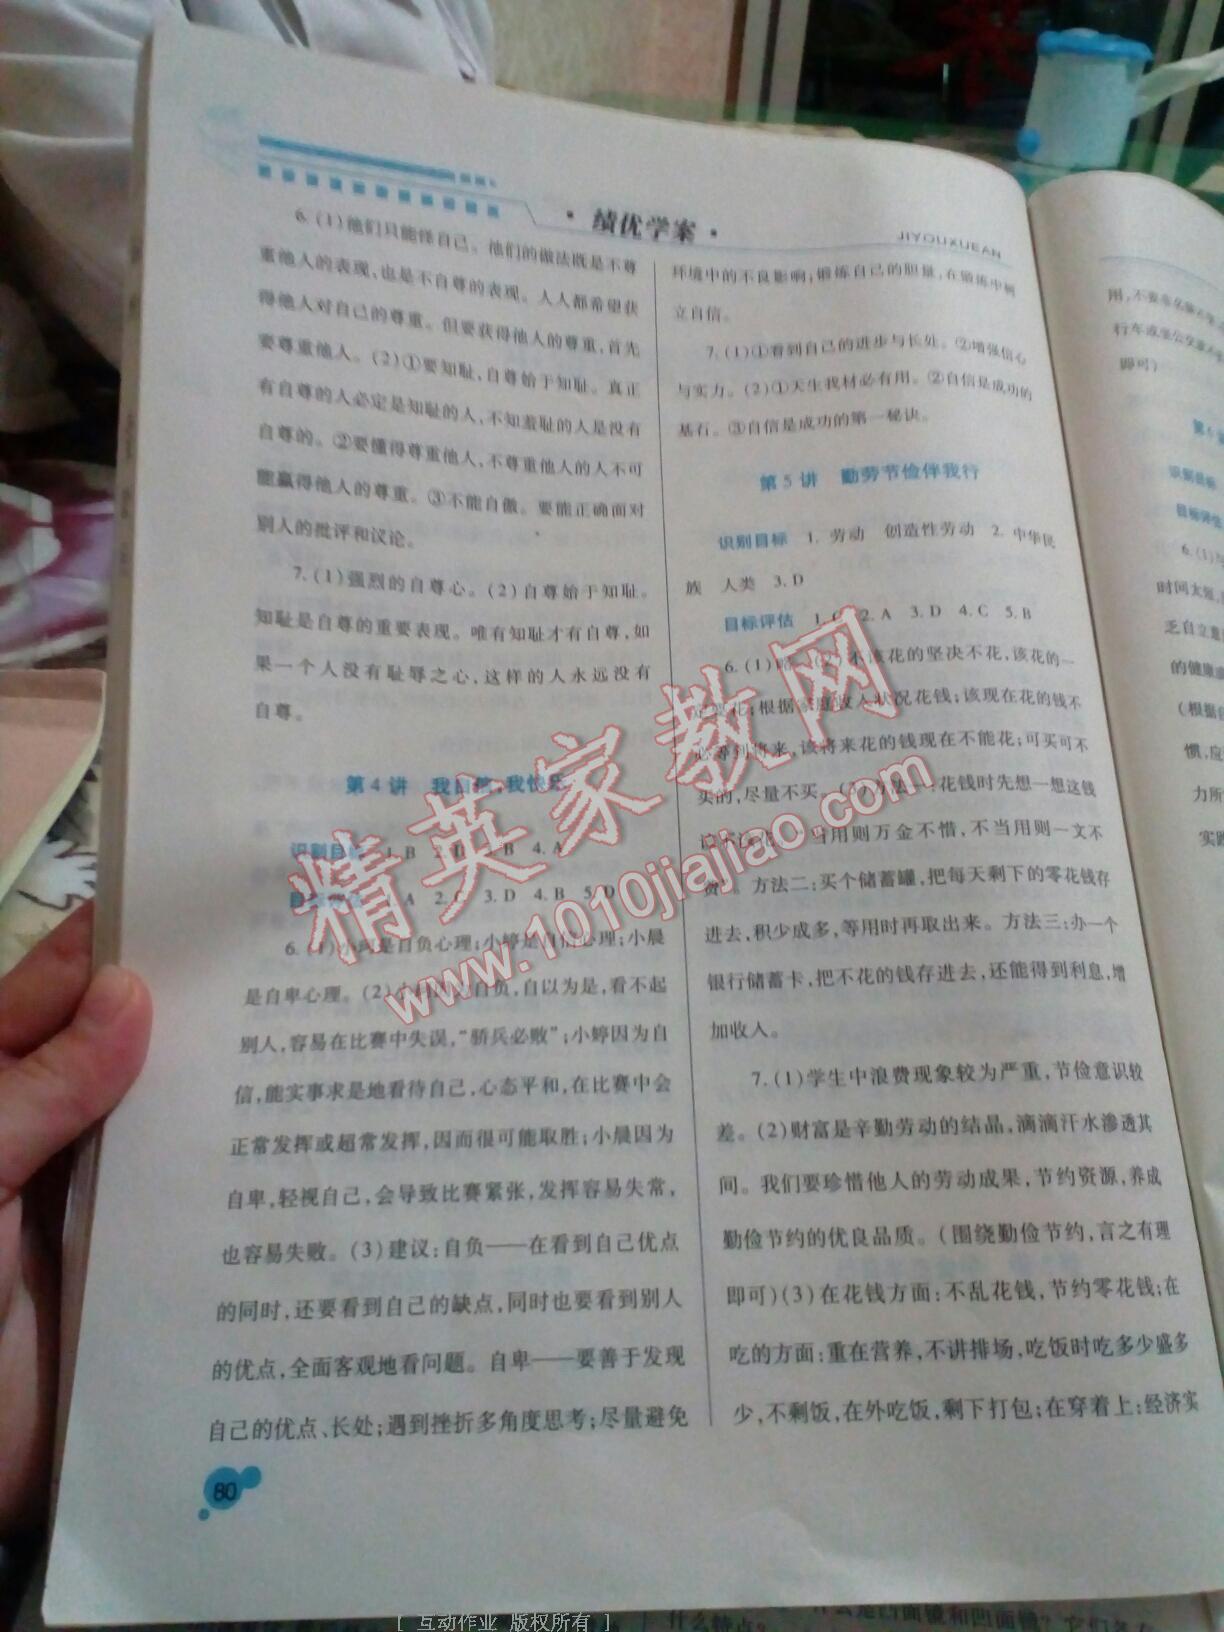 · 绩优学案 ·
JIYOUXUEAN
6. (1)他们只能怪自己。他们的做法既是不尊
重他人的表现,也是不自尊的表现。人人都希望获
得他人对自己的尊重。但要获得他人的尊重,首先
要尊重他人。(2)①要知耻,自尊始于知耻。真正
有自尊的人必定是知耻的人,不知羞耻的人是没有
自尊的。②要懂得尊重他人,不尊重他人的人不可
能赢得他人的尊重。③不能自傲。要能正确面对
别人的批评和议论。
7. (1)强烈的自尊心。(2)自尊始于知耻。
知耻是自尊的重要表现。唯有知耻才有自尊,如
果一个人没有耻辱之心,这样的人永远没有
自尊。
第 4 讲 我自信,我快乐
识别目标 1. B 2. B 4. A
目标评估 A 2. C 3. D 4. B 5. D
6. (1)小珂是自负心理;小婷是自信心理;小晨
是自卑心理。(2)小珂 自负,自以为是,看不起
别人,容易在比赛中失误,“骄兵必败”;小婷因为自
信,能实事求是地看待自己,心态平和,在比赛中会
正常发挥或超常发挥,因而很可能取胜;小晨因为
自卑,轻视自己,会导致比赛紧张,发挥容易失常,
也容易失败。(3)建议:自负——在看到自己优点
的同时,还要看到自己的缺点,同时也要看到别人
的优点,全面客观地看问题。自卑——要善于发现
自己的优点、长处;遇到挫折多角度思考;尽量避免
80
环境中的不良影响;锻炼自己的胆量,在锻炼中树
立自信。
7. (1)①看到自己的进步与长处。②增强信心
与实力。(2)①天生我材必有用。②自信是成功的
基石。③自信是成功的第一秘诀。
第 5 讲 勤劳节俭伴我行
识别目标 1. 劳动 创造性劳动 2. 中华民
族 人类 3. D
目标评估 1. C 2. A 3. D 4. C 5. B
6. (1)略 (2)不该花的坚决不花,该花的一
定要花;根据家庭收入状况花钱;该现在花的钱不
必等到将来,该将来花的钱现在不能花;可买可不
买的,尽量不买。(3)方法一:花钱时先想一想这钱
该不该花,“当用则万金不惜,不当用则一文不
费”。方法二:买个储蓄罐,把每天剩下的零花钱存
进去,积少成多,等用时再取出来。方法三:办一个
银行储蓄卡,把不花的钱存进去,还能得到利息,增
加收入。
7. (1)学生中浪费现象较为严重,节俭意识较
差。(2)财富是辛勤劳动的结晶,滴滴汗水渗透其
间。我们要珍惜他人的劳动成果,节约资源,养成
勤俭节约的优良品质。(围绕勤俭节约,言之有理
即可)(3)在花钱方面:不乱花钱,节约零花钱;在
吃的方面:重在营养,不讲排场,吃饭时吃多少盛多
少,不剩饭,在外吃饭,剩下打包;在穿着上:经济实
用,不要
行车或
即可)
第 6
识别目标
目标评估
6. (1)
时间太短,
乏自立意
的健康
(根据
惯,应
力所
实践
精英家教网
www.1010jiajiao.com
[ 互动作业 版权所有 ]
什么特点?
什么是凸面镜和凹面镜?它们各有